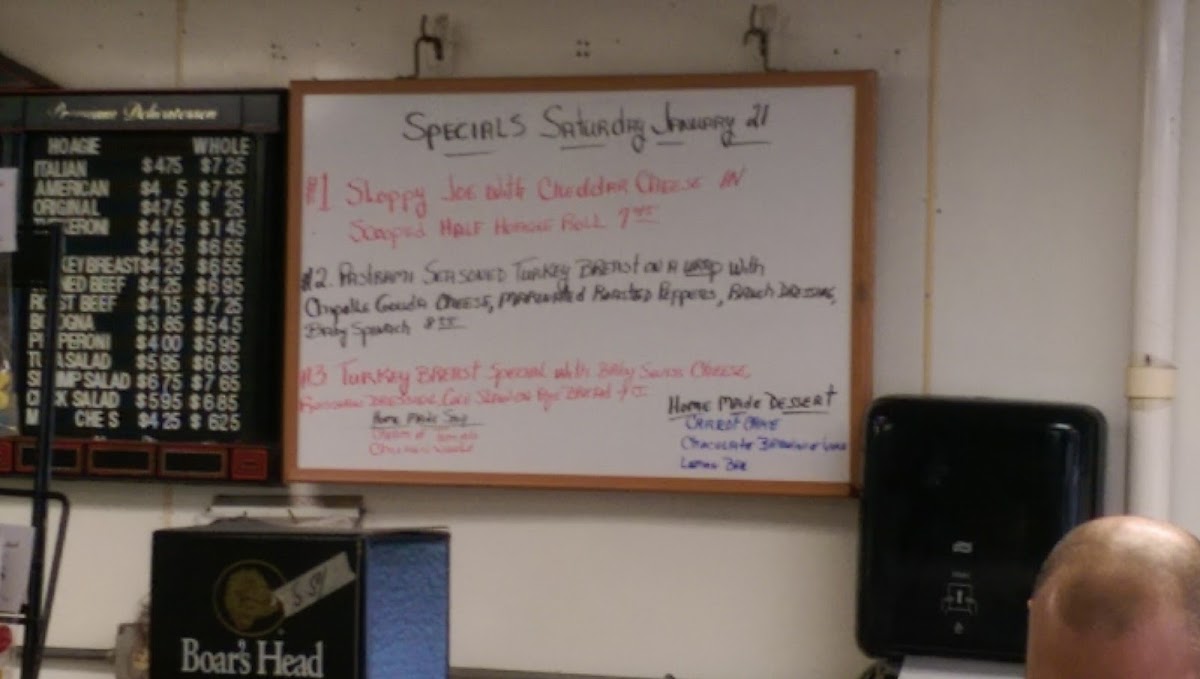 Delicatessen
HOAGIE WHOLE
ITALIAN $4 75 $7 25
AMERICAN $4 5 $7 25
ORIGINAL $4 75 $ 25
ERONI $4.75 $1 45
$4.25 $6.55
KEY BREAST $4 25 $6.55
NED BEEF $4.25 $6 95
RO ST BEEF $4 15 $7 25
BO OGNA $3 85 $5 45
P PPERONI $4 00 $5 95
TU A SALAD $5 95 $6 85
SH IMP SALAD $6 75 $7 65
CH CK SALAD $5 95 $6 85
M CHE S $4 25 $ 6 25
SPECIALS SATURDAY JANUARY 21
#1 Sloppy JOE with CHEDDAR CHEESE IN
SCOOPED HALF HOAGIE ROLL
#2. PASTRAMI SEASONED TURKEY BREAST ON A WRAP with
Gouda CHEESE, MARINATED ROASTED PEPPERS, RANCH DRESSING,
BABY SPINACH
#3 TURKEY BREAST SPECIAL with BABY SWISS CHEESE,
RUSSIAN DRESSING, COLE SLAW ON RYE BREAD
HOME MADE SOUP
CREAM OF TOMATO
CHICKEN NOODLE
HOME MADE DESSERT
CARROT CAKE
LEMON BAR
5.59
Boar's Head